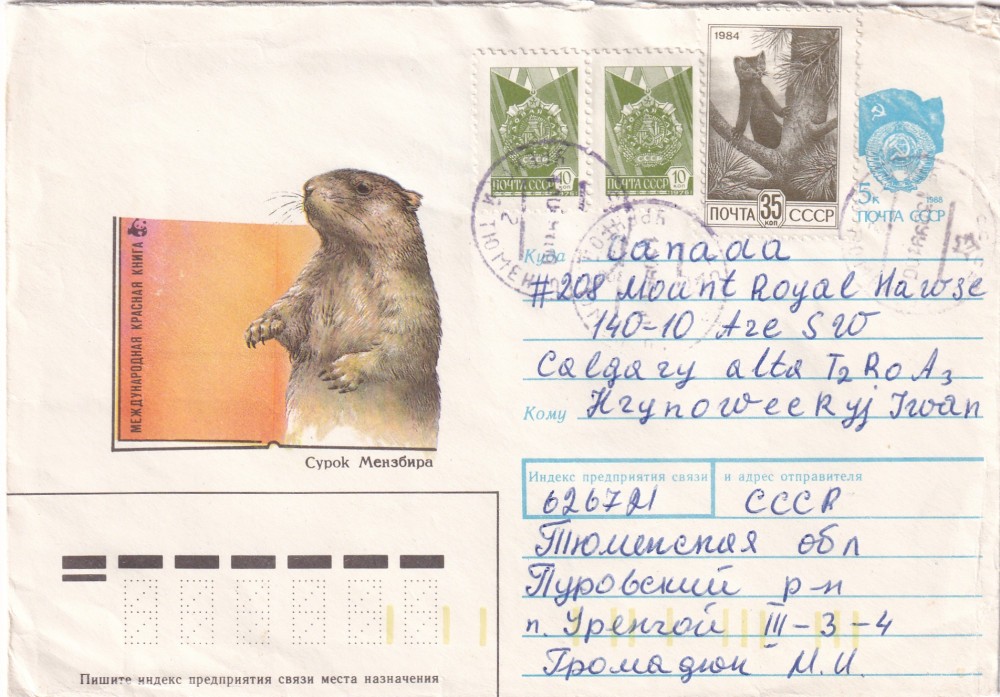 1984
ПОЧТА СССР 10 коп
ПОЧТА СССР 10 коп
ПОЧТА 35 коп СССР
5к 1988
ПОЧТА СССР
Куда Canada
#208 Mount Royal Hawse
140-10 Are SW
Calgary alta T2R0A3
Кому Hrynoweckyj Iwan
МЕЖДУНАРОДНАЯ КРАСНАЯ КНИГА
Сурок Мензбира
Индекс предприятия связи и адрес отправителя
626721 СССР
Тюменская обл
Пуровский р-н
п. Уренгой III-3-4
Громадюк М.И.
Пишите индекс предприятия связи места назначения